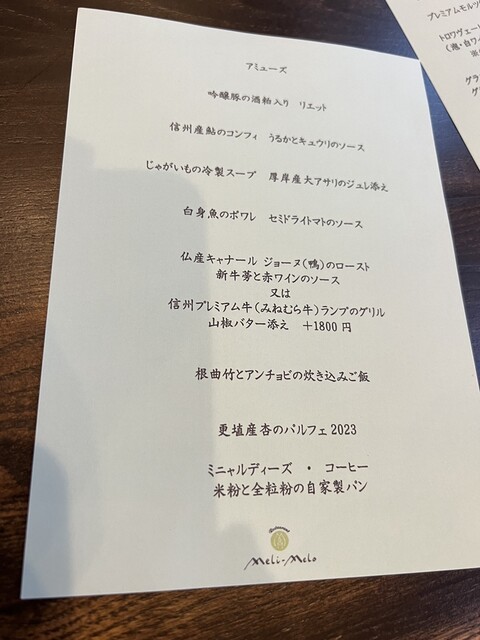 アミューズ
吟醸豚の酒粕入り リエット
信州産鮎のコンフィ うるかとキュウリのソース
じゃがいもの冷製スープ 厚岸産大アサリのジュレ添え
白身魚のポワレ セミドライトマトのソース
仏産キャナール ジョーヌ(鴨)のロースト
新牛蒡と赤ワインのソース
又は
信州プレミアム牛(みねむら牛)ランプのグリル
山椒バター添え +1800円
根曲竹とアンチョビの炊き込みご飯
更埴産杏のパルフェ2023
ミニャルディーズ ・ コーヒー
米粉と全粒粉の自家製パン
Meli-Melo
プレミアムモルツ
トロワヴェー
(泡・白ワ
グラ